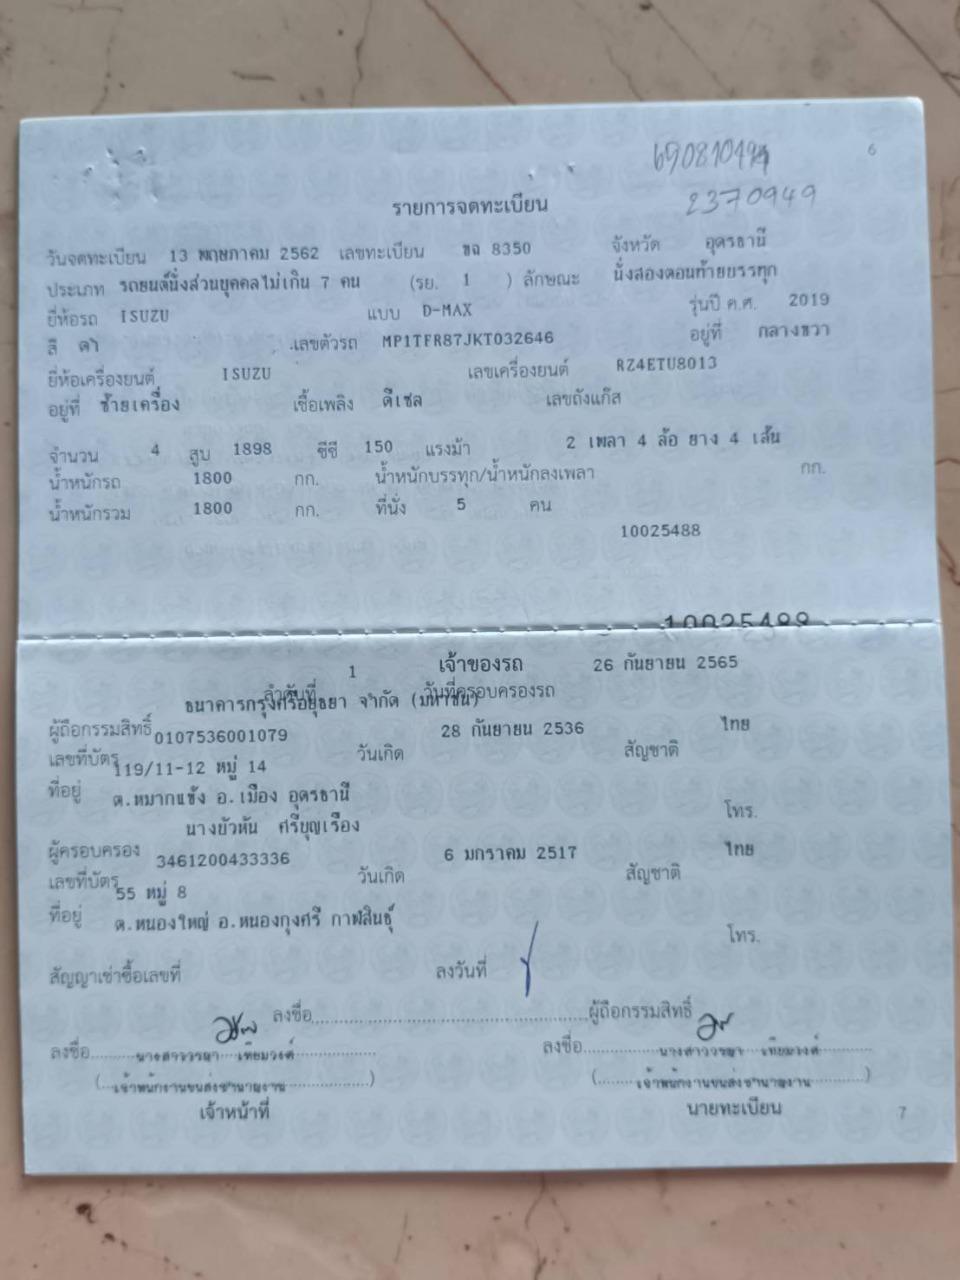 6
2370949
รายการจดทะเบียน
วันจดทะเบียน 13 พฤษภาคม 2562 เลขทะเบียน ขฉ 8350 จังหวัด อุดรธานี
ประเภท รถยนต์นั่งส่วนบุคคลไม่เกิน 7 คน (รย. 1 ) ลักษณะ นั่งสองตอนท้ายบรรทุก
ยี่ห้อรถ ISUZU แบบ D-MAX รุ่นปี ค.ศ. 2019
สี ดำ เลขตัวรถ MP1TFR87JKT032646 อยู่ที่ กลางขวา
ยี่ห้อเครื่องยนต์ ISUZU เลขเครื่องยนต์ RZ4ETU8013
อยู่ที่ ซ้ายเครื่อง เชื้อเพลิง ดีเซล เลขถังแก๊ส
จำนวน 4 สูบ 1898 ซีซี 150 แรงม้า 2 เพลา 4 ล้อ ยาง 4 เส้น
น้ำหนักรถ 1800 กก. น้ำหนักบรรทุก/น้ำหนักลงเพลา กก.
น้ำหนักรวม 1800 กก. ที่นั่ง 5 คน
10025488
10025488
ลำดับที่ 1 เจ้าของรถ วันที่ครอบครองรถ 26 กันยายน 2565
ผู้ถือกรรมสิทธิ์ ธนาคารกรุงศรีอยุธยา จำกัด (มหาชน)
เลขที่บัตร 0107536001079 วันเกิด 28 กันยายน 2536 สัญชาติ ไทย
ที่อยู่ 119/11-12 หมู่ 14
ต.หมากแข้ง อ.เมือง อุดรธานี โทร.
ผู้ครอบครอง นางบัวหัน ศรีบุญเรือง
เลขที่บัตร 3461200433336 วันเกิด 6 มกราคม 2517 สัญชาติ ไทย
ที่อยู่ 55 หมู่ 8
ต.หนองใหญ่ อ.หนองกุงศรี กาฬสินธุ์ โทร.
สัญญาเช่าซื้อเลขที่ ลงวันที่
ลงชื่อ ผู้ถือกรรมสิทธิ์
ลงชื่อ นางสาววรญา เทียมวงศ์ ลงชื่อ นางสาววรญา เทียมวงศ์
(เจ้าพนักงานขนส่งชำนาญงาน) (เจ้าพนักงานขนส่งชำนาญงาน)
เจ้าหน้าที่ นายทะเบียน
7